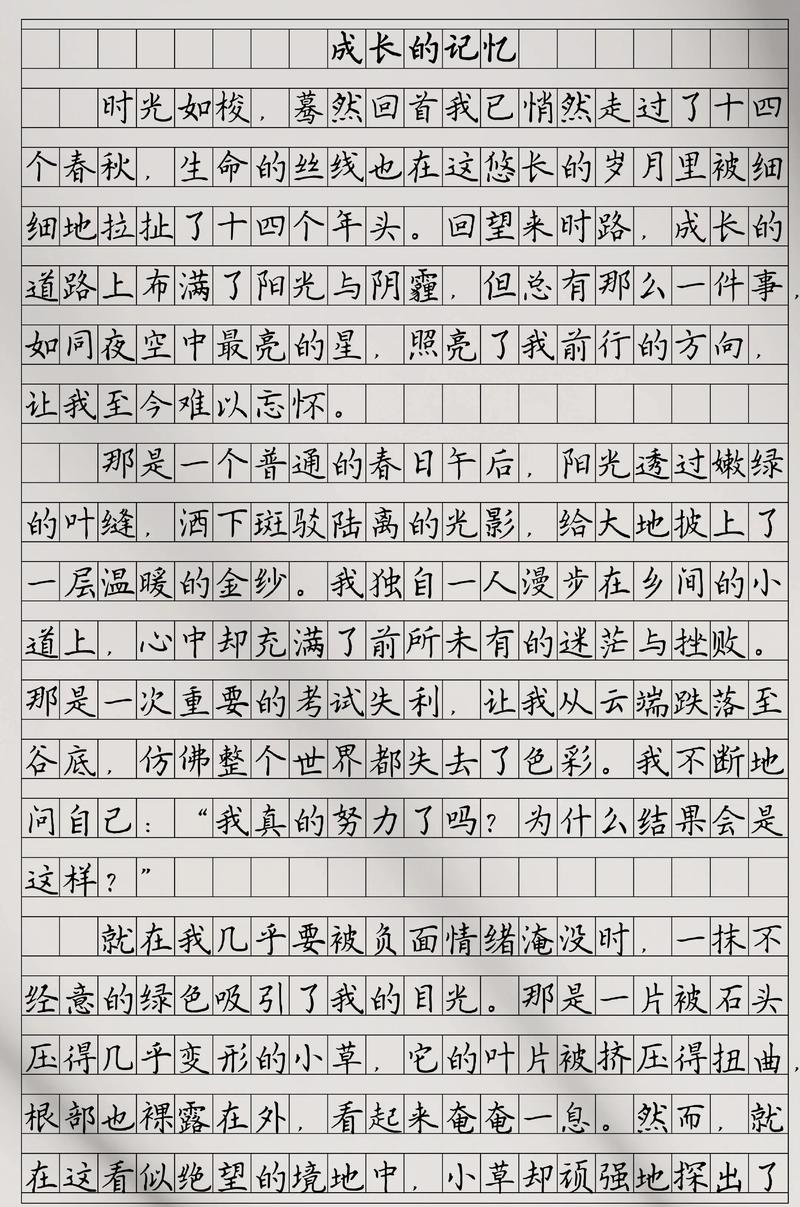 成长的记忆
时光如梭，蓦然回首我已悄然走过了十四
个春秋，生命的丝线也在这悠长的岁月里被细
细地拉扯了十四个年头。回望来时路，成长的
道路上布满了阳光与阴霾，但总有那么一件事，
如同夜空中最亮的星，照亮了我前行的方向，
让我至今难以忘怀。
那是一个普通的春日午后，阳光透过嫩绿
的叶缝，洒下斑驳陆离的光影，给大地披上了
一层温暖的金纱。我独自一人漫步在乡间的小
道上，心中却充满了前所未有的迷茫与挫败。
那是一次重要的考试失利，让我从云端跌落至
谷底，仿佛整个世界都失去了色彩。我不断地
问自己：“我真的努力了吗？为什么结果会是
这样？”
就在我几乎要被负面情绪淹没时，一抹不
经意的绿色吸引了我的目光。那是一片被石头
压得几乎变形的小草，它的叶片被挤压得扭曲，
根部也裸露在外，看起来奄奄一息。然而，就
在这看似绝望的境地中，小草却顽强地探出了